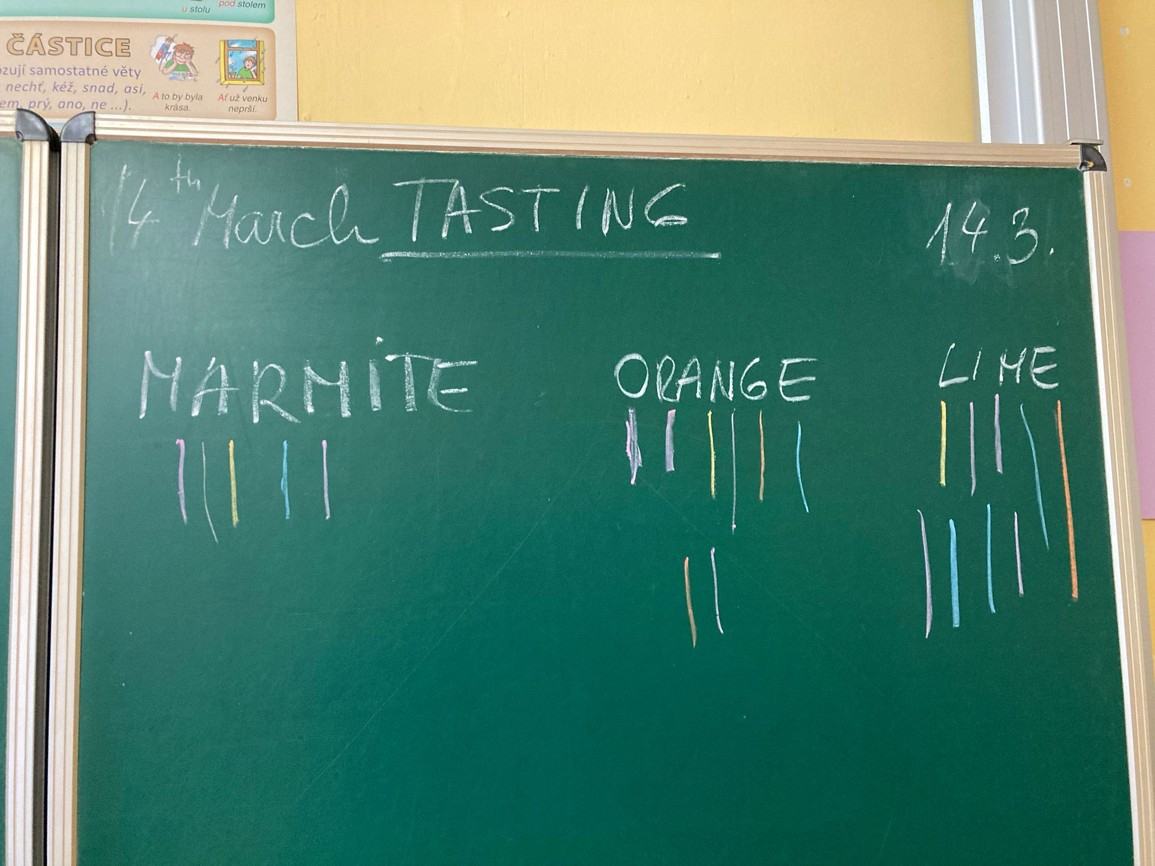 u stolu
pod stolem
ČÁSTICE
ozují samostatné věty
nechť, kéž, snad, asi,
em, prý, ano, ne ...).
A to by byla
krása.
Ať už venku
neprší.
14th March TASTING
14.3.
MARMITE
ORANGE
LIME